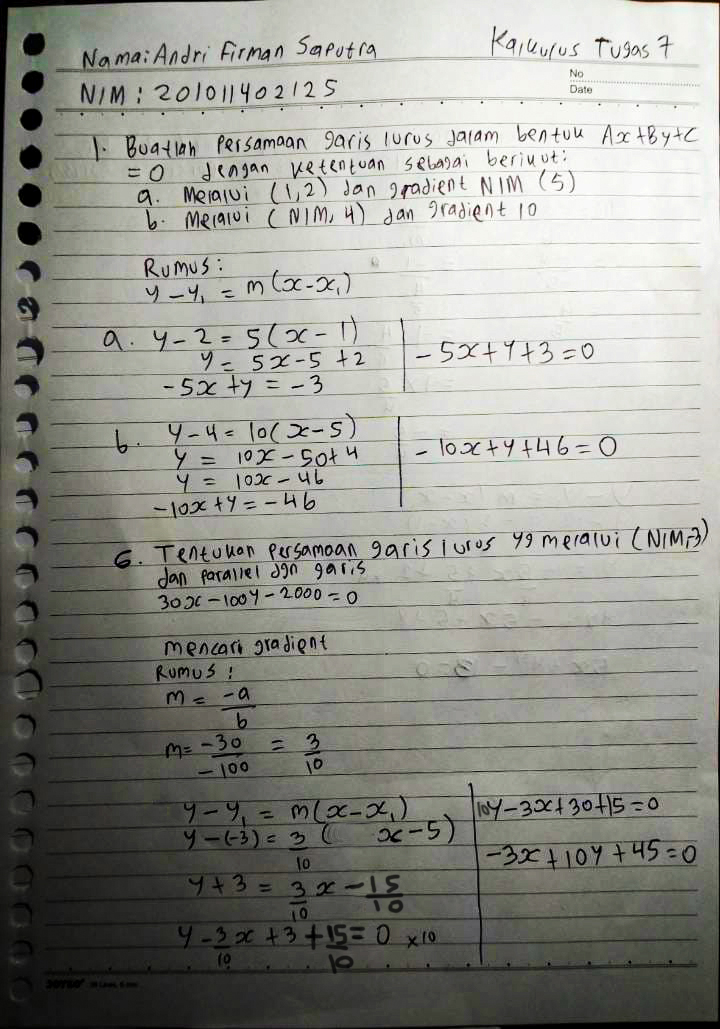 Nama: Andri Firman Saputra
Kalkulus Tugas 7
NIM : 201011402125
No
Date
1. Buatlah Persamaan garis lurus dalam bentuk Ax+By+C
= 0 dengan ketentuan sebagai berikut:
a. Melalui (1,2) dan gradient NIM (5)
b. Melalui (NIM, 4) dan gradient 10
Rumus :
y - y₁ = m(x-x₁)
a. y - 2 = 5(x - 1)
y = 5x-5 +2
-5x +y = -3
-5x+y+3=0
b. y-4 = 10(x-5)
y = 10x - 50+4
y = 10x - 46
-10x+y = -46
-10x+y+46=0
6. Tentukan persamaan garis lurus yg melalui (NIM,-3)
dan parallel dgn garis
30x-100y-2000=0
mencari gradient
Rumus :
m = -a/b
m= -30/-100 = 3/10
y-y₁ = m(x-x₁)
y-(-3) = 3/10 ( x-5)
y+3 = 3/10 x - 15/10
y - 3/10 x + 3 + 15/10 = 0 ×10
10y-3x+30+15=0
-3x+10y+45=0